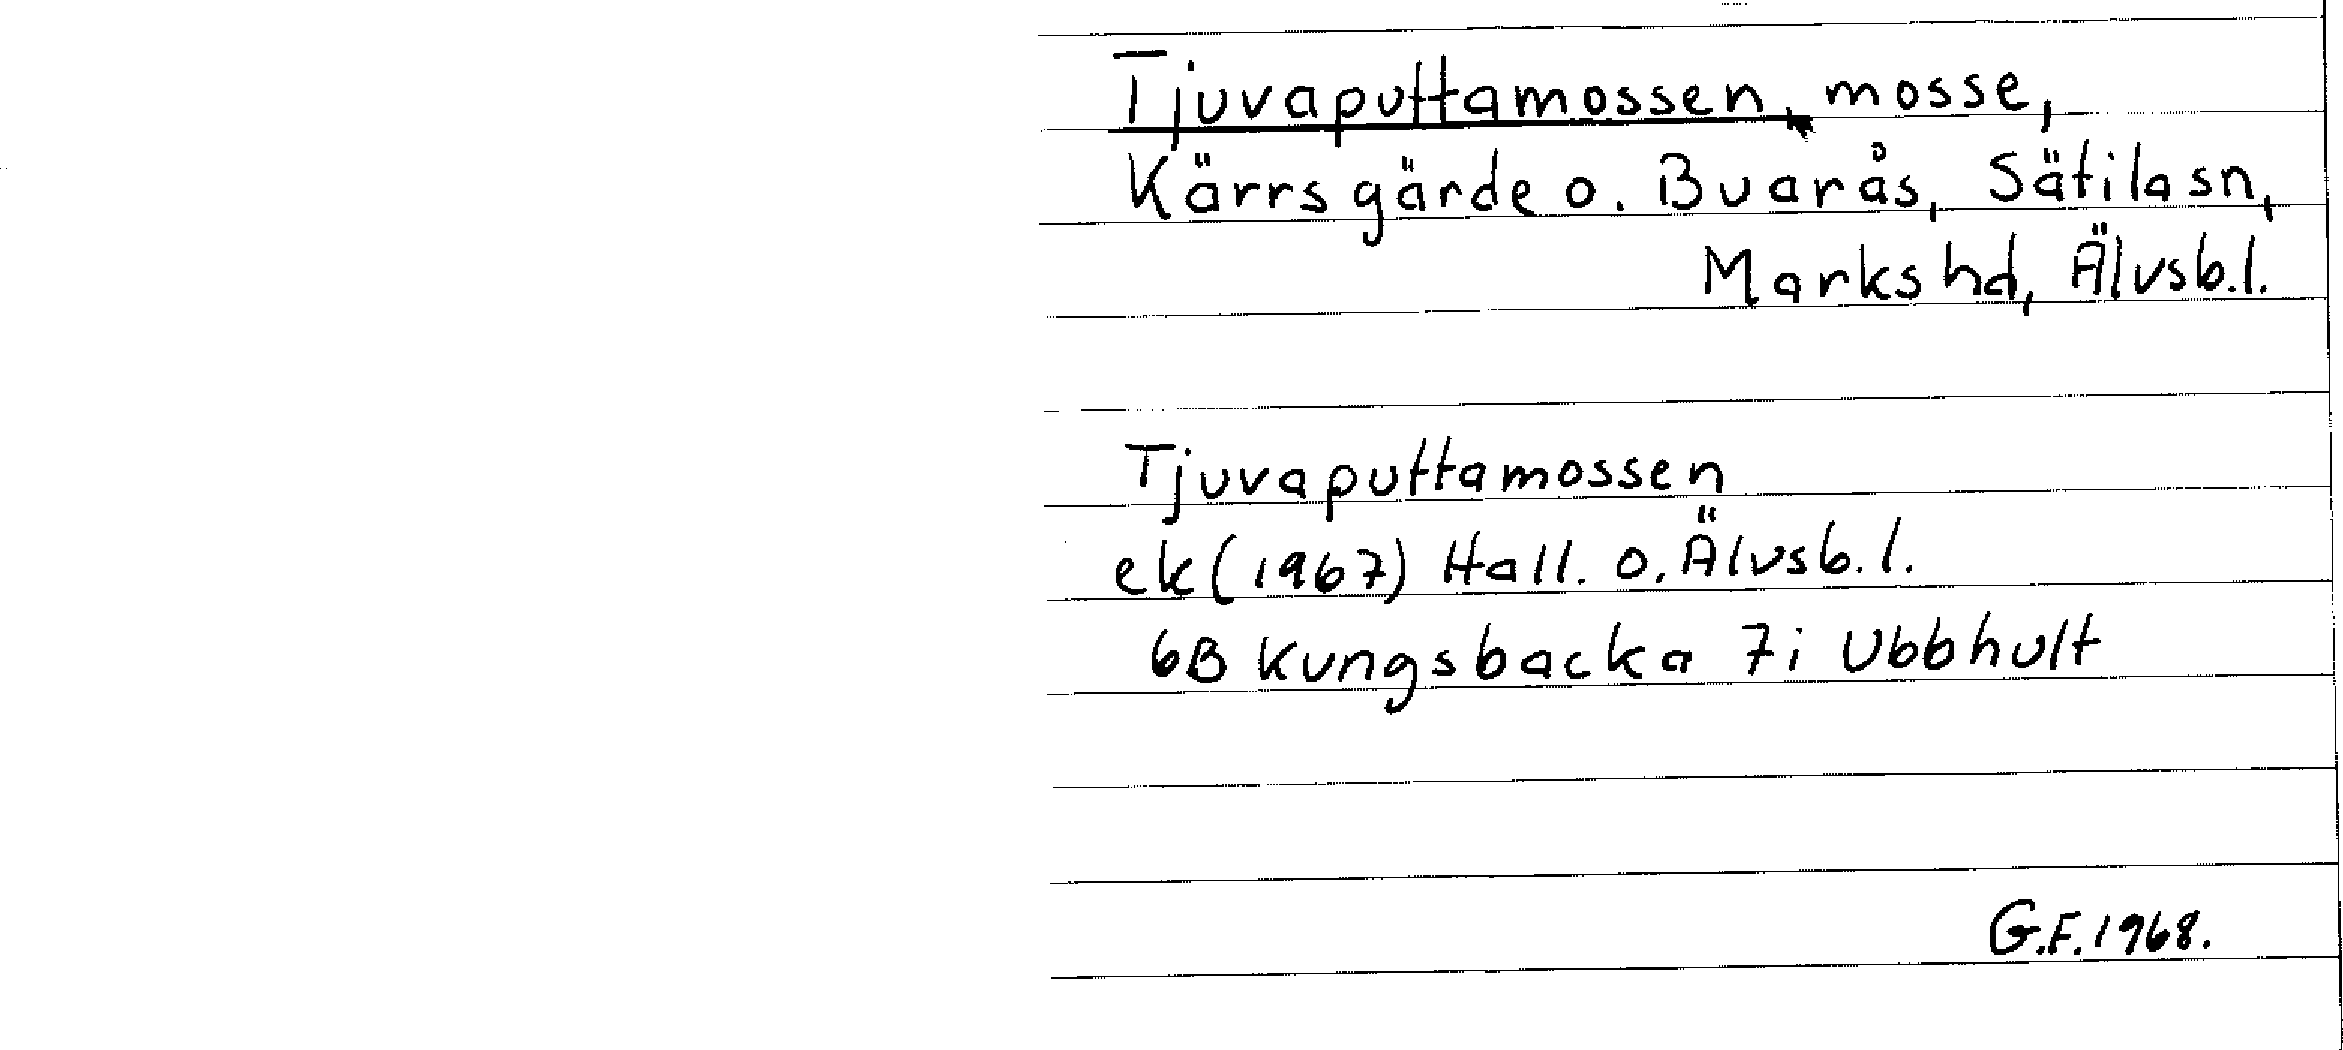 Tjuvaputtamossen, mosse,
Kärrsgärde o. Buarås, Sätila sn,
Marks hd, Älvsb.l.
Tjuvaputtamossen
ek (1967) Hall. o. Älvsb.l.
6B Kungsbacka 7i Ubbhult
G.F. 1968.